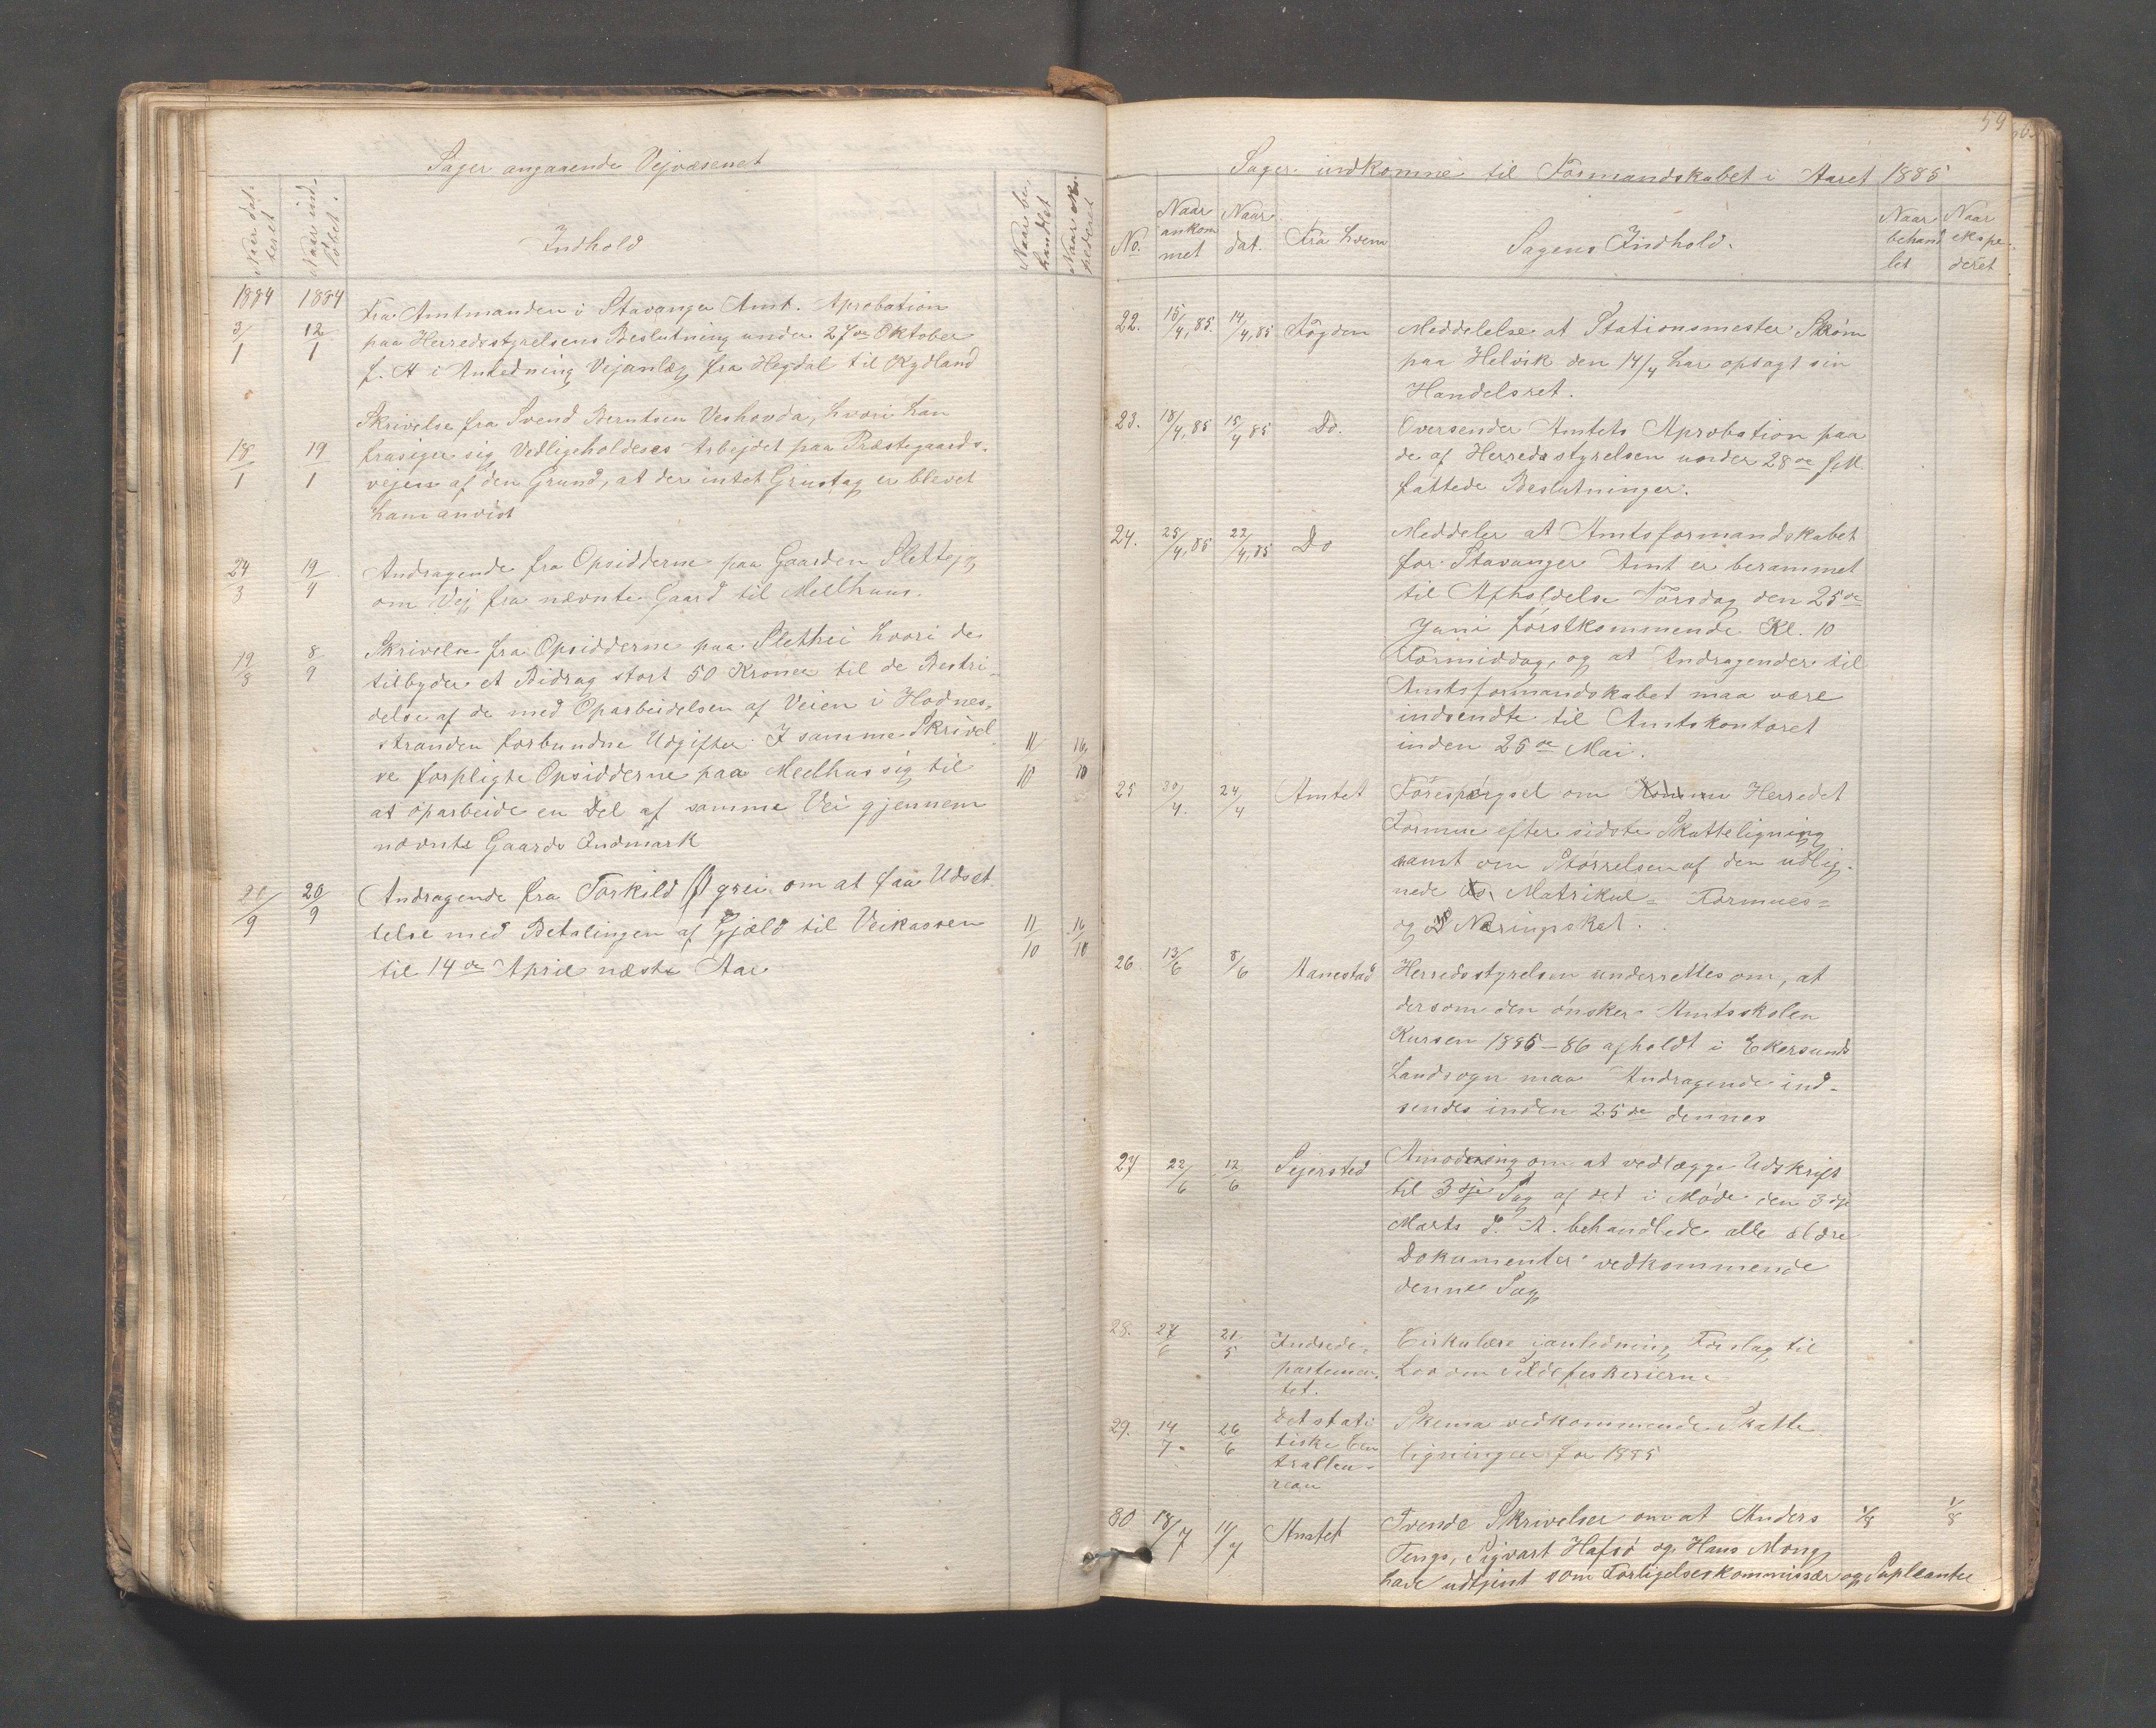 Sager angaaende Vejvæsenet
Naar dat-
teret
Naar ind-
løbet.
Indhold
Naar be-
handlet
Naar eks-
pederet
1884 1884
3/1 12/1 Fra Amtmanden i Stavanger Amt. Aprobation
paa Herredsstyrelsens Beslutning under 27de Oktober
f. A i Anledning Vejanlæg fra Hegdal til Rydland
Skrivelse fra Svend Berntsen Veshovda, hvori han
18/1 19/1 frasiger sig Vedligeholdeses Arbejdet paa Præstegaards-
vejen af den Grund, at der intet Grustag er blevet
ham anvist
24/3 19/4 Andragende fra Opsidderne paa Gaarden Slettej
om Vej fra nævnte Gaard til Mellhuus.
19/8 8/9 Skrivelse fra Opsidderne paa Slettei hvori de
tilbyder et Bidrag stort 50 Kroner til de Bestri-
delse af de med Oparbeidelsen af Veien i Hodnes-
stranden forbundne Udgifter. I samme Skrivel
se forpligte Opsidderne paa Mellhus sig til 11/10 16/10
at oparbeide en Del af samme Vei gjennem
nævnte Gaards Indmark
20/9 20/9 Andragende fra Torkild Øgrei om at faa Udset
telse med Betalingen af Gjæld til Veikassen 11/10 16/10
til 14de April næste Aar
59
Sager indkomne til Formandskabet i Aaret 1885
No. Naar
ankom
met Naar
dat. Fra hvem Sagens Indhold. Naar
behand
let Naar
ekspe-
deret
22. 15/4,85. 14/4,85 Fogden Meddelelse at Stationsmester Strøm
paa Helvik den 14/4 har opsagt sin
Handelsret.
23. 18/4,85 15/4 85 Do. Oversender Amtets Aprobation paa
de af Herredsstyrelsen under 28de f.M.
fattede Beslutninger.
24. 25/4,85 22/4,85 Do Meddeler at Amtsformandskabet
for Stavanger Amt er berammet
til Afholdelse Torsdag den 25de
Juni førstkommende Kl. 10
Formiddag, og at Andragender til
Amtsformandskabet maa være
indsendte til Amtskontoret
inden 25de Mai.
25 30/4. 24/4 Amtet Forespørgsel om Herredet
Formue efter sidste Skatteligning
samt om Størrelsen af den udlig-
nede Matrikul- Formues-
og Næringskat.
26 13/6 8/6 Aanestad Herredsstyrelsen underrettes om, at
dersom den ønsker Amtsskolen
Kursen 1885-86 afholdt i Ekersunds
Landsogn maa Andragende ind-
sendes inden 25de dennes
27 22/6 12/6 Sejersted Anmodning om at vedlægge Udskrift
til 3dje Sag af det i Møde den 3dje
Marts d. A. behandlede alle ældre
Dokumenter vedkommende
denne Sag
28. 27/6 21/5 Indrede-
partemen-
tet. Cirkulære i anledning Forslag til
Lov om Sildefiskerierne
29. 14/7. 26/6 Det stati
stiske Cen
tralbu-
reau Skema vedkommende Skatte
ligningen for 1885
30 18/7 11/7 Amtet Tvende Skrivelser om at Anders 1/8 1/8
Tengs, Sigvart Hafsø og Hans Mong
have udtjent som Forligelseskommissær og Supleanter